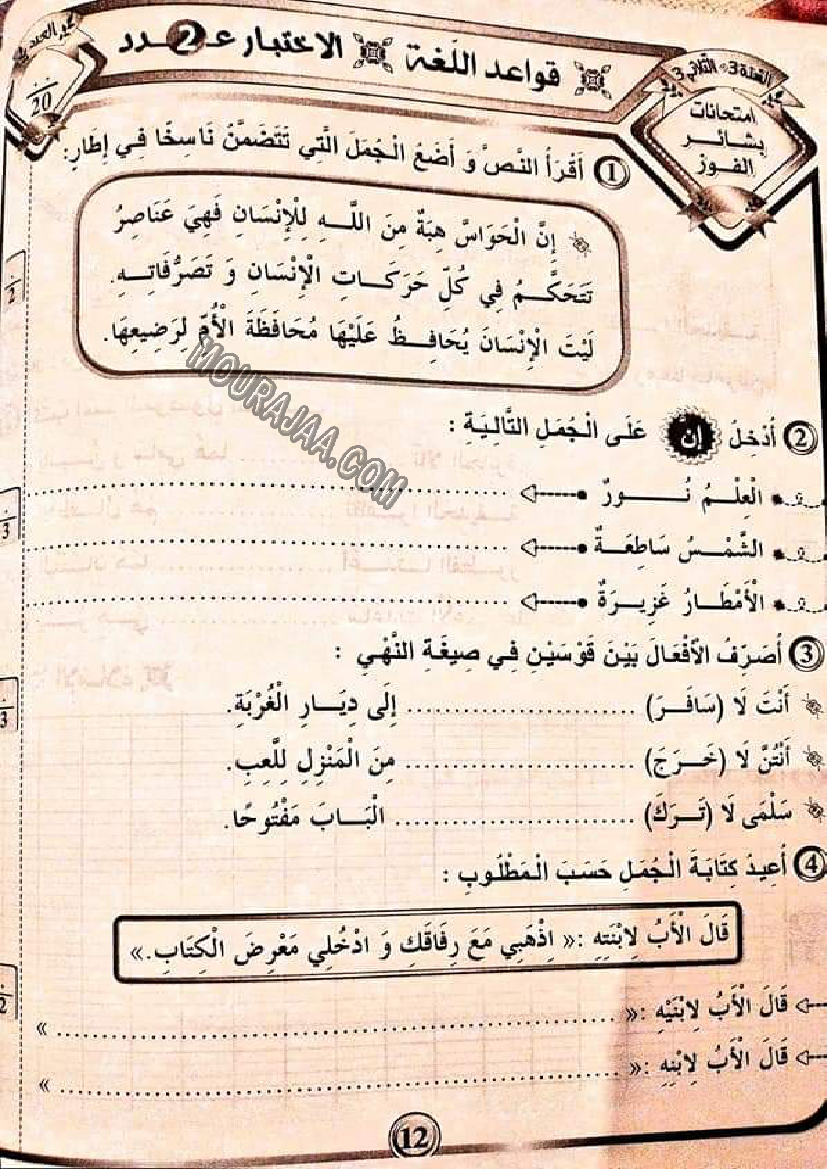 قواعد اللّغة الاختبار عـ 2 ـدد
السّنة 3 • الثّلاثي 3
امتحانات
بشائر
الفوز
العدد
20
1 أَقْرَأُ النَّصَّ وَ أَضَعُ الْجُمَلَ الَّتِي تَتَضَمَّنُ نَاسِخًا فِي إِطَارٍ:
إِنَّ الْحَوَاسَّ هِبَةٌ مِنَ اللَّـهِ لِلْإِنْسَانِ فَهِيَ عَنَاصِرُ
تَتَحَكَّـمُ فِي كُلِّ حَرَكَـاتِ الْإِنْسَانِ وَ تَصَرُّفَاتِـهِ.
لَيْتَ الْإِنْسَانَ يُحَافِـظُ عَلَيْهَا مُحَافَظَةَ الْأُمِّ لِرَضِيعِهَا.
2
MOURAJAA.COM
2 أُدْخِلُ إِنَّ عَلَى الْجُمَلِ التَّالِيَةِ :
الْعِلْـمُ نُـورٌ ........................
3
الشَّمْـسُ سَاطِعَـةٌ ........................
الْأَمْطَـارُ غَزِيـرَةٌ ........................
3 أُصَرِّفُ الْأَفْعَالَ بَيْنَ قَوْسَيْنِ فِي صِيغَةِ النَّهْيِ :
3
أَنْتَ لَا (سَافَـرَ) ........................ إِلَى دِيَـارِ الْغُرْبَةِ.
أَنْتُنَّ لَا (خَـرَجَ) ........................ مِنَ الْمَنْزِلِ لِلَّعِبِ.
سَلْمَى لَا (تَـرَكَ) ........................ الْبَـابَ مَفْتُوحًا.
4 أُعِيدُ كِتَابَةَ الْجُمَلِ حَسَبَ الْمَطْلُوبِ :
قَالَ الْأَبُ لِابْنَتِهِ :« اِذْهَبِي مَعَ رِفَاقِكِ وَ ادْخُلِي مَعْرِضَ الْكِتَابِ.»
2
قَالَ الْأَبُ لِابْنَيْهِ :« ........................ »
قَالَ الْأَبُ لِابْنِهِ :« ........................ »
12